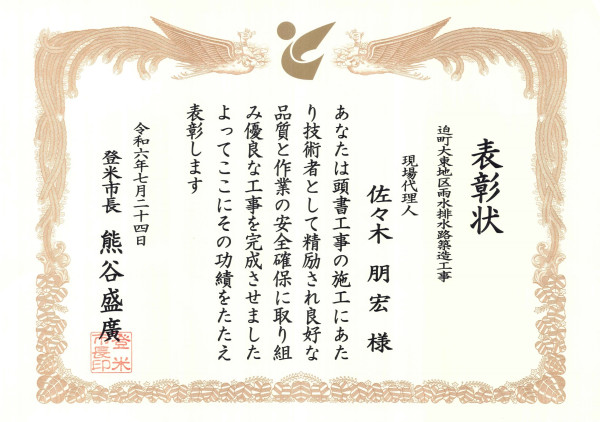 表彰状
迫町大東地区雨水排水路築造工事
現場代理人
佐々木 朋宏 様
あなたは頭書工事の施工にあた
り技術者として精励され良好な
品質と作業の安全確保に取り組
み優良な工事を完成させました
よってここにその功績をたたえ
表彰します
令和六年七月二十四日
登米市長 熊谷盛廣
登米
市長印